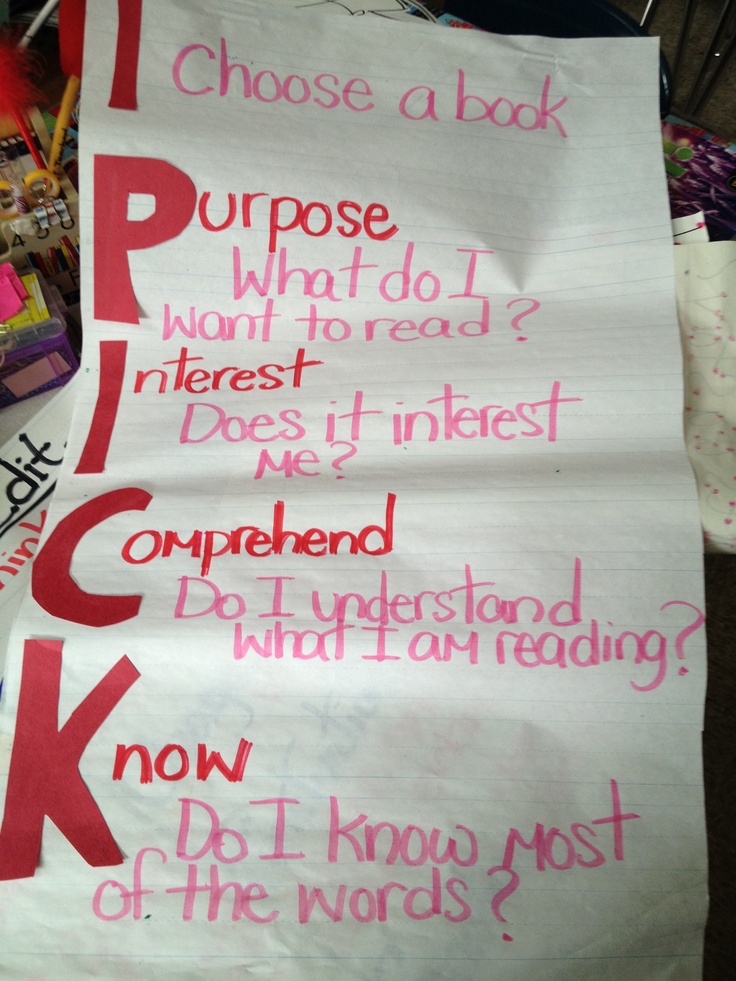 I Choose a book
Purpose
What do I
want to read?
Interest
Does it interest
me?
Comprehend
Do I understand
what I am reading?
Know
Do I know most
of the words?
4
dit
hink